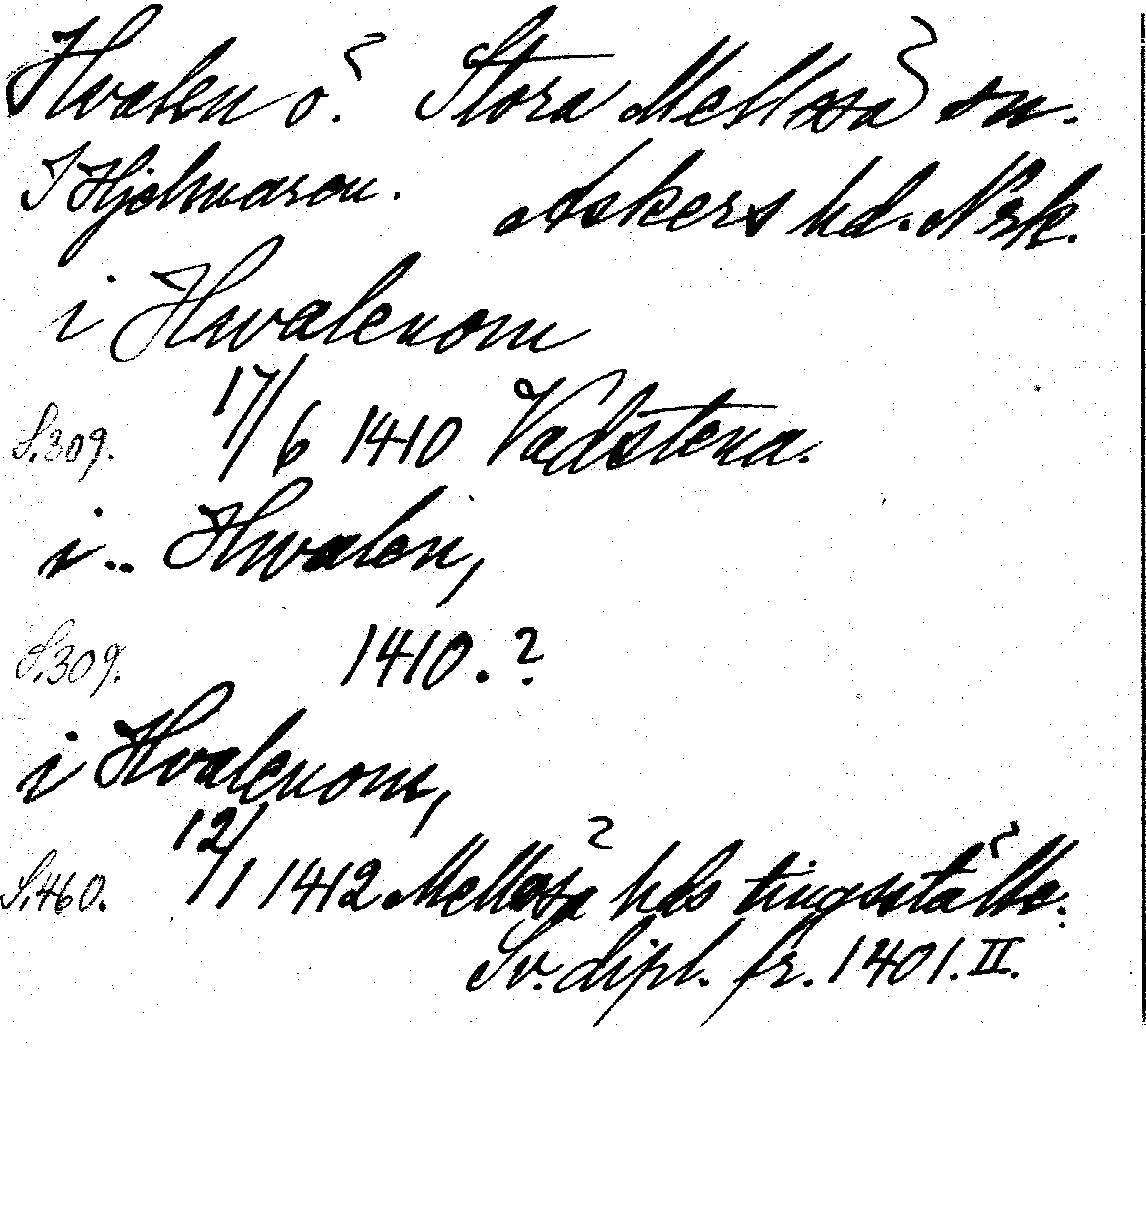 Hvalen ö. Stora Mellösa sn.
I Hjelmaren. Askers hd. Nrk.
i Hwalenom
S.309. 17/6 1410 Vadstena.
i .. Hwalen,
S.309. 1410.?
i Hvalenom,
S.460. 12/1 1412 Mellösa hds tingsställe.
Sv. dipl. fr. 1401. II.